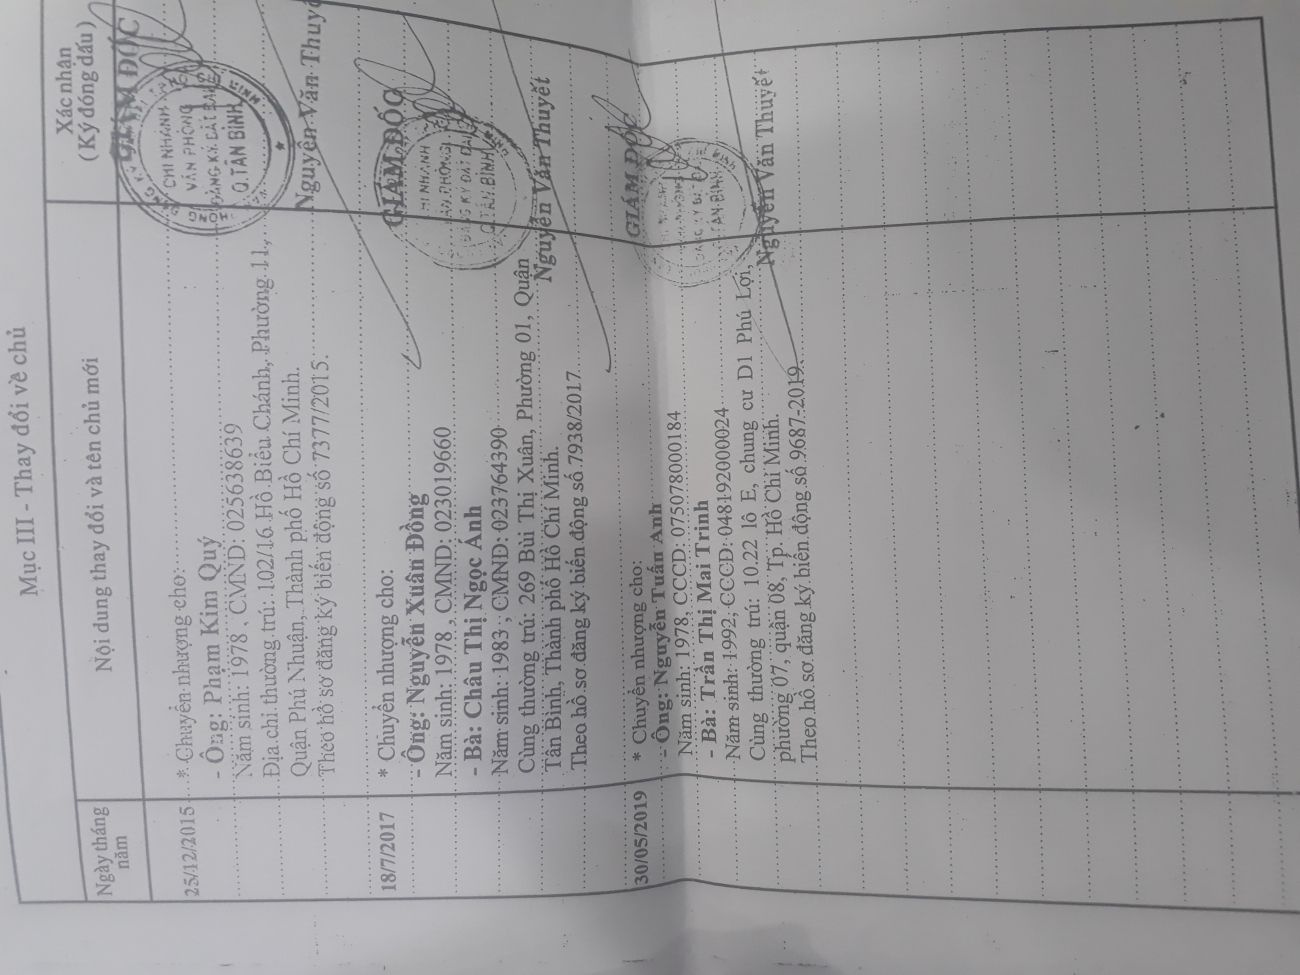 Mục III - Thay đổi về chủ
Ngày tháng năm
Nội dung thay đổi và tên chủ mới
Xác nhận
( Ký đóng dấu )
25/12/2015
* Chuyển nhượng cho:
- Ông: Phạm Kim Quý
Năm sinh: 1978 , CMND: 025638639
Địa chỉ thường trú: 102/16 Hồ Biểu Chánh, Phường 11,
Quận Phú Nhuận, Thành phố Hồ Chí Minh.
Theo hồ sơ đăng ký biến động số 7377/2015.
GIÁM ĐỐC
CHI NHÁNH
VĂN PHÒNG
ĐĂNG KÝ ĐẤT ĐAI
Q.TÂN BÌNH
Nguyễn Văn Thuyết
18/7/2017
* Chuyển nhượng cho:
- Ông: Nguyễn Xuân Đồng
Năm sinh: 1978 , CMND: 023019660
- Bà: Châu Thị Ngọc Ánh
Năm sinh: 1983 , CMND: 023764390
Cùng thường trú: 269 Bùi Thị Xuân, Phường 01, Quận
Tân Bình, Thành phố Hồ Chí Minh.
Theo hồ sơ đăng ký biến động số 7938/2017.
GIÁM ĐỐC
Nguyễn Văn Thuyết
30/05/2019
* Chuyển nhượng cho:
- Ông: Nguyễn Tuấn Anh
Năm sinh: 1978, CCCD: 075078000184
- Bà: Trần Thị Mai Trinh
Năm sinh: 1992, CCCD: 048192000024
Cùng thường trú: 10.22 lô E, chung cư D1 Phú Lợi,
phường 07, quận 08, Tp. Hồ Chí Minh.
Theo hồ sơ đăng ký biến động số 9687-2019.
GIÁM ĐỐC
Nguyễn Văn Thuyết